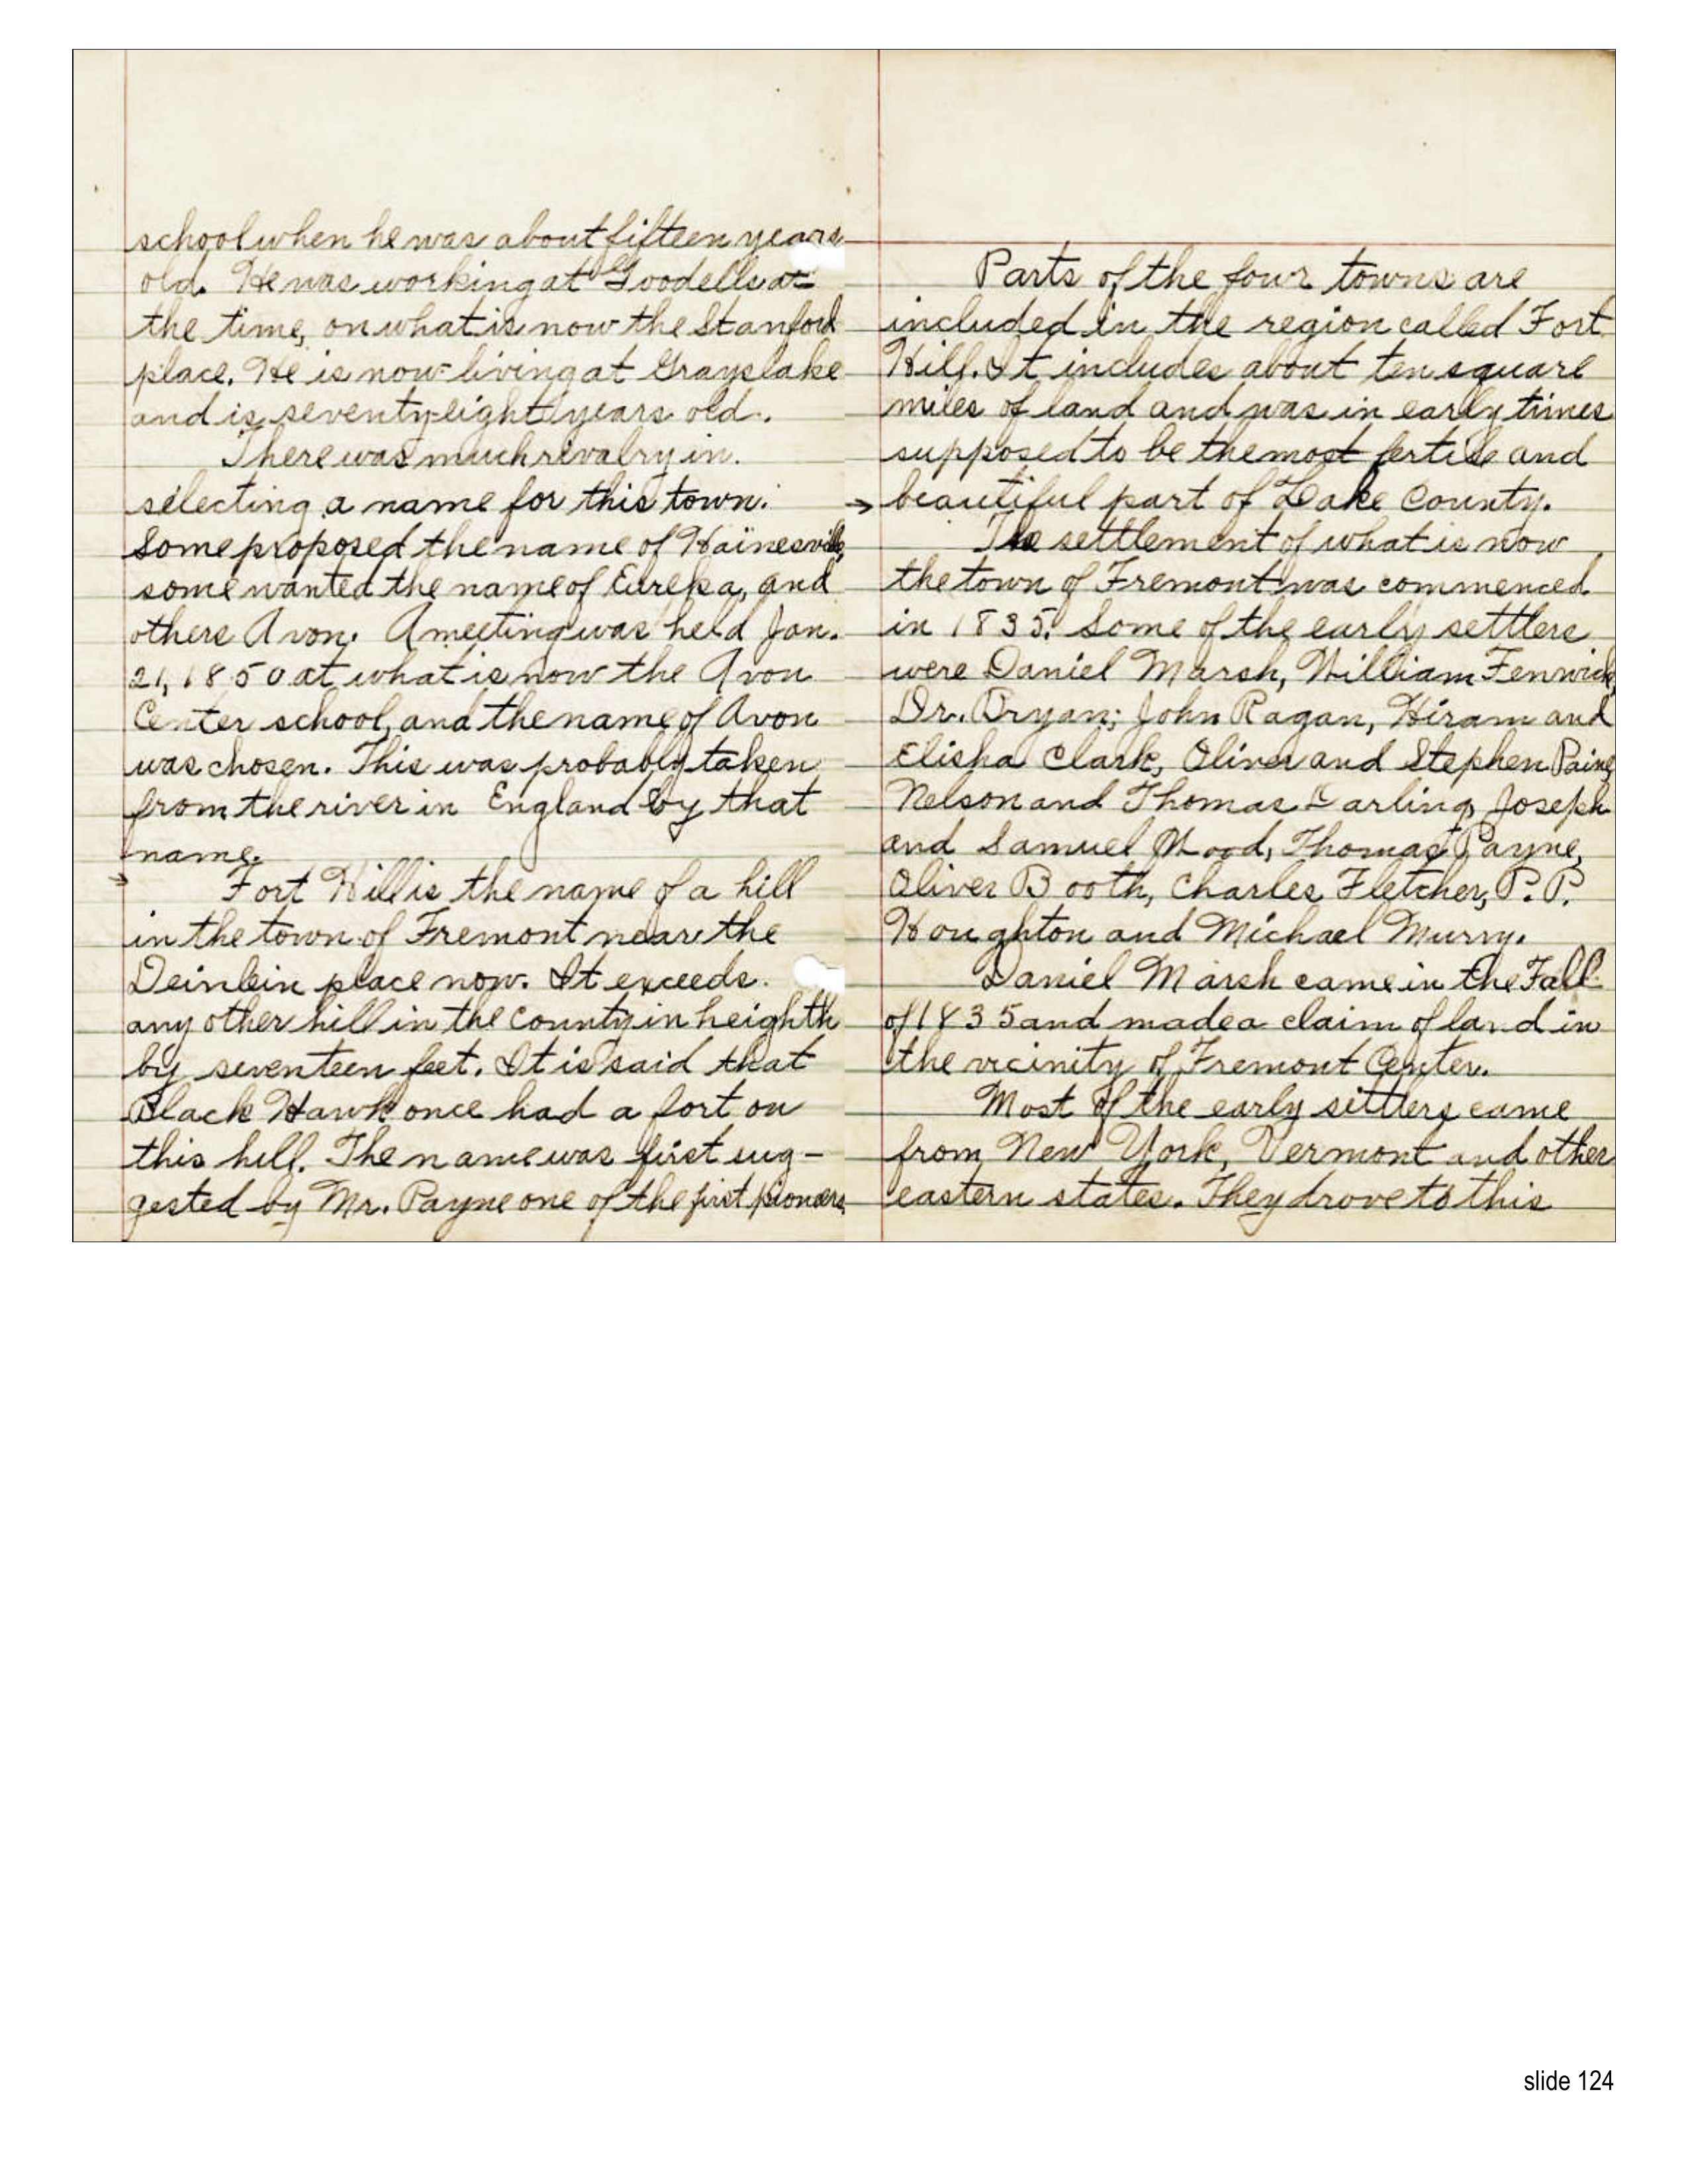 school when he was about fifteen years
old. He was working at Goodells at
the time, on what is now the Stanford
place. He is now living at Grayslake
and is seventy-eight years old.
There was much rivalry in
selecting a name for this town.
Some proposed the name of Hainesville,
some wanted the name of Eureka, and
others Avon. A meeting was held Jan.
21, 1850 at what is now the Avon
Center school, and the name of Avon
was chosen. This was probably taken
from the river in England by that
name.
→ Fort Hill is the name of a hill
in the town of Fremont near the
Deinlein place now. It exceeds
any other hill in the county in heighth
by seventeen feet. It is said that
Black Hawk once had a fort on
this hill. The name was first sug-
gested by Mr. Payne one of the first pioneers.
Parts of the four towns are
included in the region called Fort
Hill. It includes about ten square
miles of land and was in early times
supposed to be the most fertile and
→ beautiful part of Lake County.
The settlement of what is now
the town of Fremont was commenced
in 1835. Some of the early settlers
were Daniel Marsh, William Fenwick,
Dr. Bryan; John Ragan, Hiram and
Elisha Clark, Oliver and Stephen Paine,
Nelson and Thomas Darling, Joseph
and Samuel Wood, Thomas Payne,
Oliver Booth, Charles Fletcher, P. P.
Houghton and Michael Murry.
Daniel Marsh came in the Fall
of 1835 and made a claim of land in
the vicinity of Fremont Center.
Most of the early sittlers came
from New York, Vermont and other
eastern states. They drove to this
slide 124